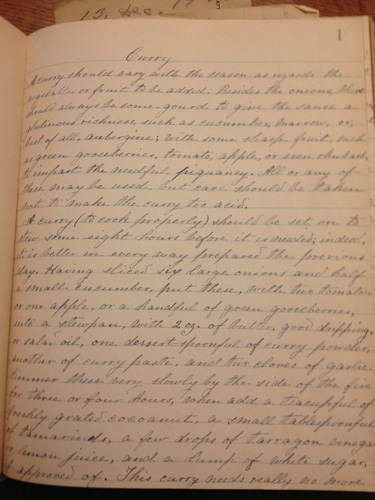 13. Dec
1
Curry
A curry should vary with the season as regards the
vegetables or fruit to be added. Besides the onions there
should always be some gourd to give the sauce a
glutinous richness, such as cucumber, marrow, or,
best of all, aubergine; with some sharp fruit, such
as green gooseberries, tomato, apple, or even rhubarb,
to impart the needful piquancy. All or any of
these may be used, but care should be taken
not to make the curry too acid.
A curry (to cook properly) should be set on to
stew some eight hours before it is needed; indeed,
it is better in every way prepared the previous
day. Having sliced six large onions and half
a small cucumber, put these, with two tomatoes
or one apple, or a handful of green gooseberries,
into a stewpan, with 2 oz. of butter, good dripping,
or salad oil, one dessert-spoonful of curry powder,
another of curry paste, and two cloves of garlic.
Simmer these very slowly by the side of the fire
for three or four hours, when add a teacupful of
freshly grated cocoanut, a small tablespoonful
of tamarinds, a few drops of tarragon vinegar
or lemon juice, and a lump of white sugar,
if approved of. This curry needs really no more